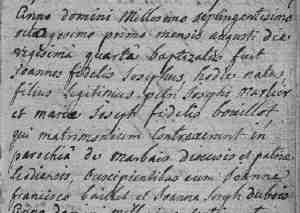 Anno domini millesimo septingentesimo
octogesimo primo mensis augusti die
vigesima quarta baptizatus fuit
joannes fidelis josephus, hodie natus,
filius legitimus petri josephi marlier
et mariæ joseph fidelis bouillot
qui matrimonium contraxerunt in
parochia de marbais diœcesis
Susceptentibus eum joanne
francisco et joanna joseph dubois